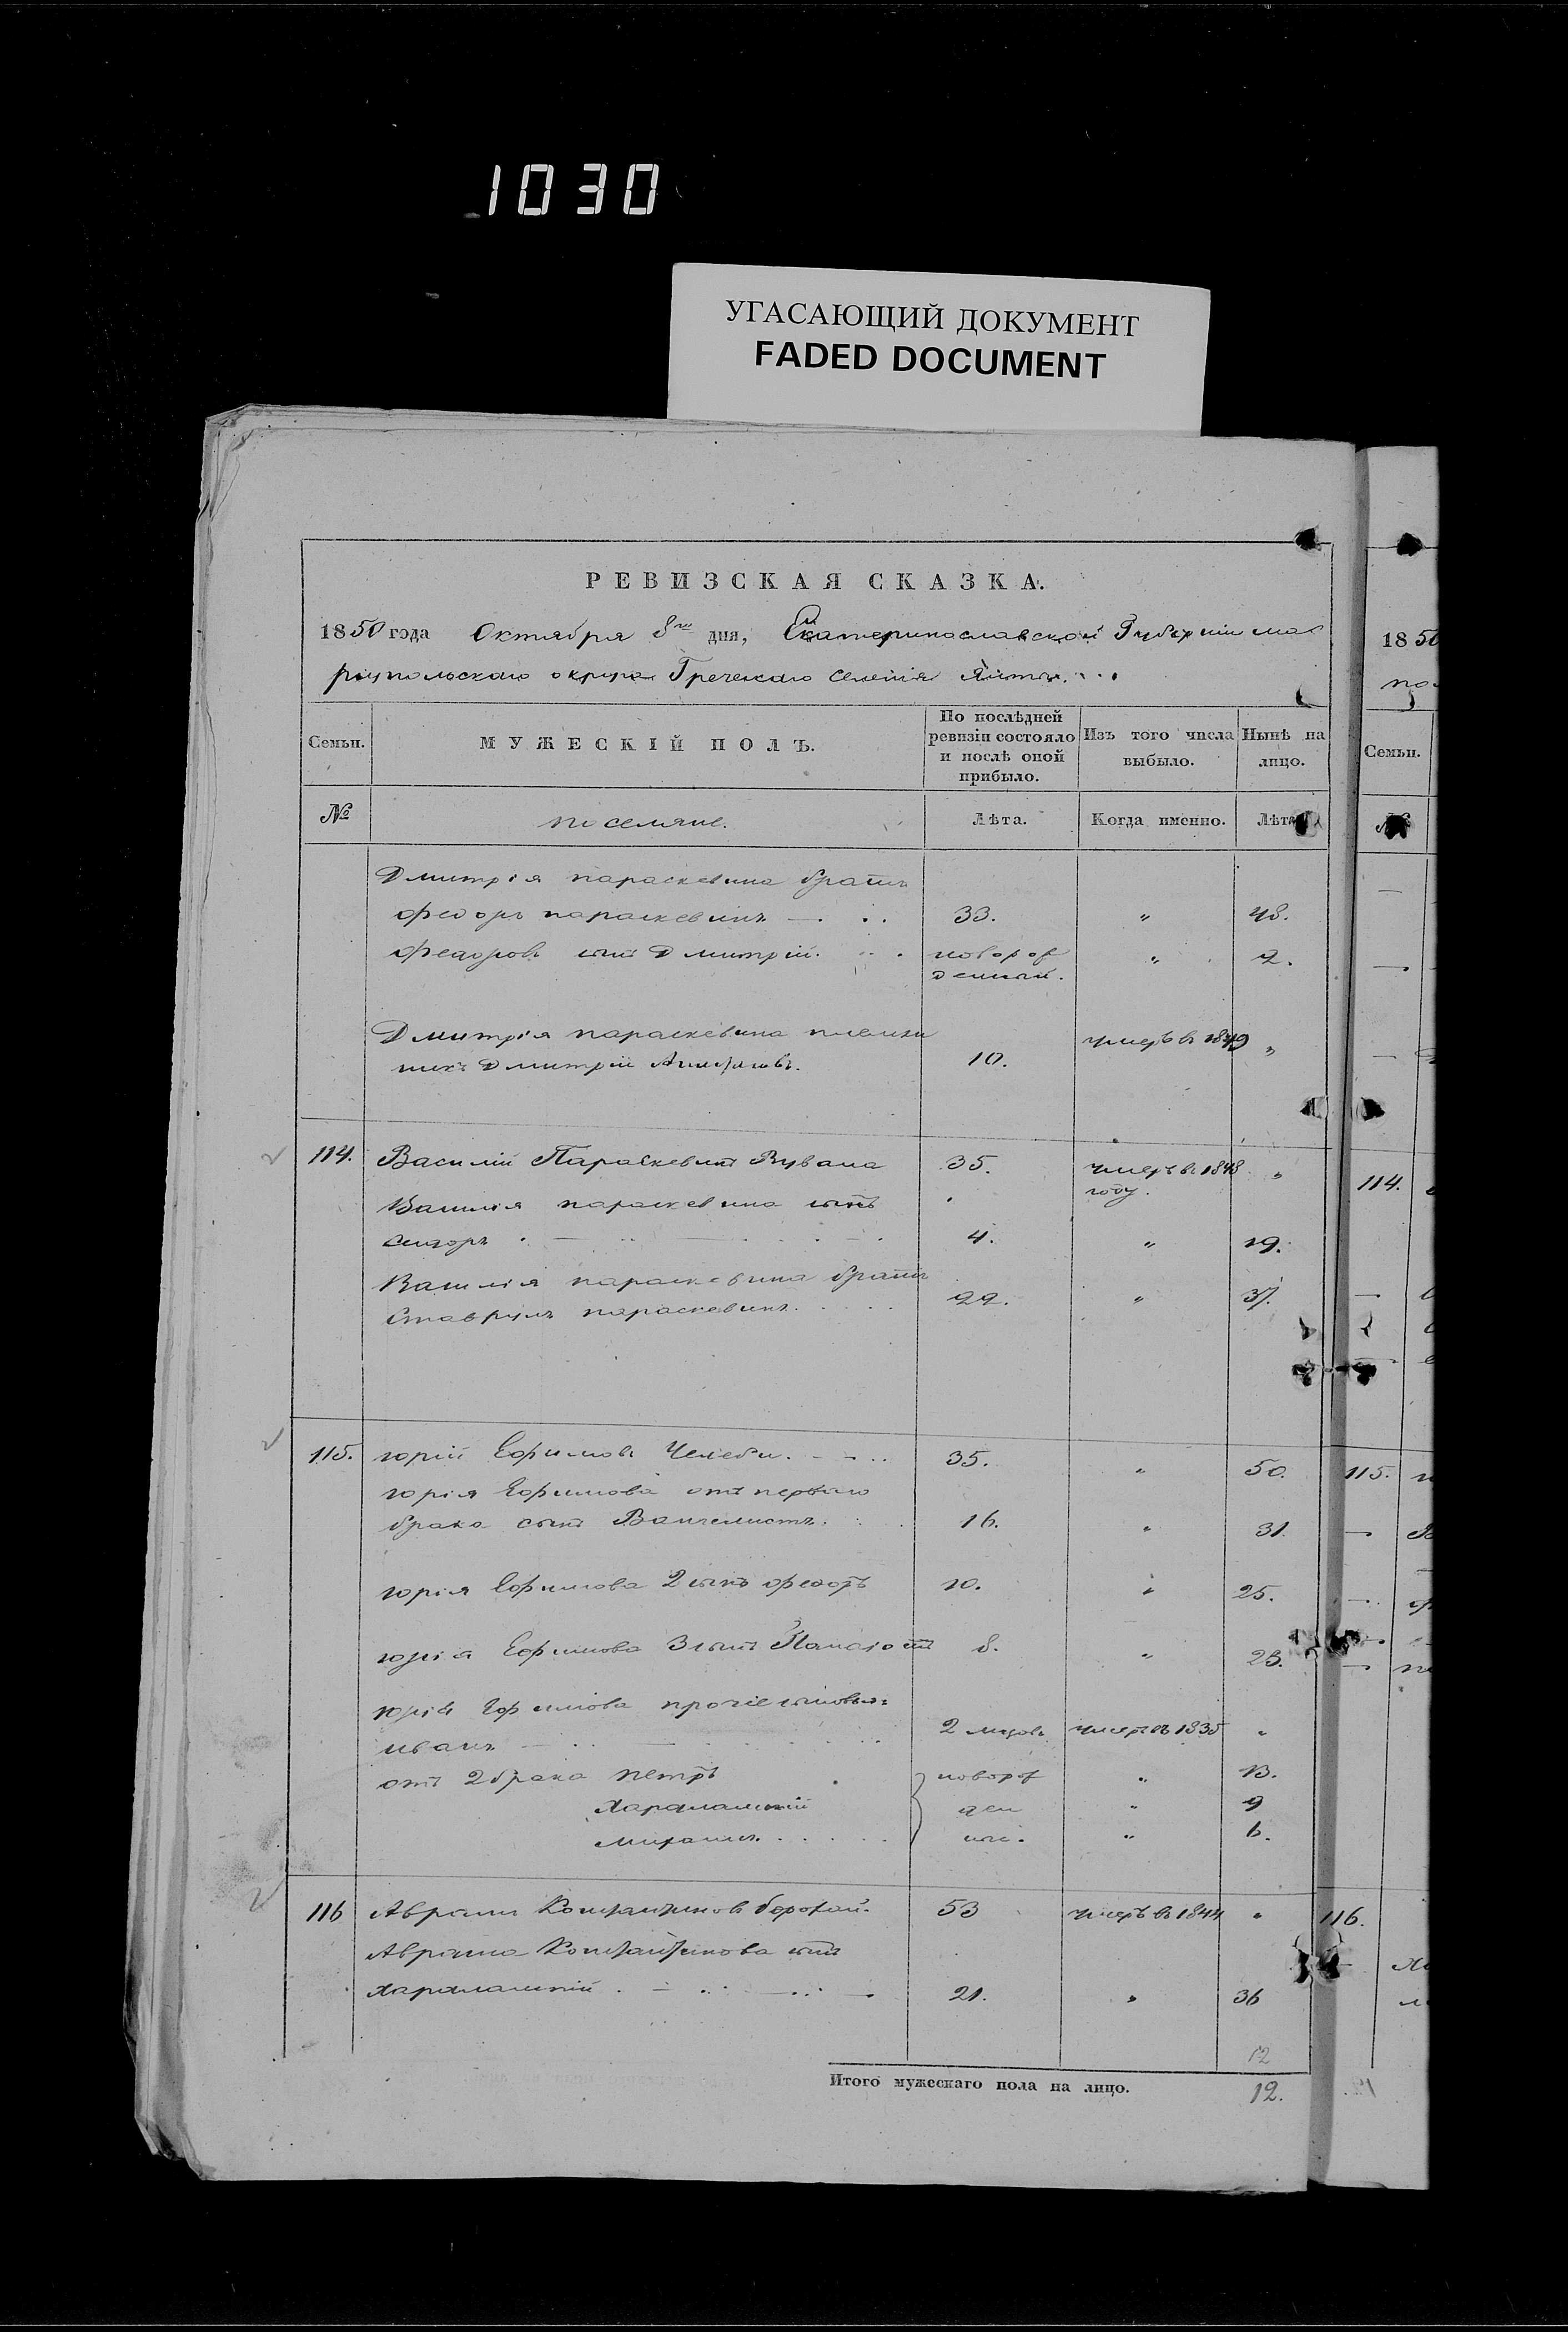 1030
УГАСАЮЩИЙ ДОКУМЕНТ
FADED DOCUMENT
РЕВИЗСКАЯ СКАЗКА.
1850 года Октября 8го дня, Екатеринославской Губерніи Ма
ріупольскаго округа Греческаго Селенія Ялты.
Семьи. МУЖЕСКІЙ ПОЛЪ. По послѣдней ревизіи состояло и послѣ оной прибыло. Изъ того числа выбыло. Нынѣ на лицо.
№ поселяне. Лѣта. Когда именно. Лѣта.
Дмитрія Параскевина братъ
Федоръ Параскевинъ 33. " 48.
Федоровъ сынъ Дмитрій. новорож
денный. " 2.
Дмитрія Параскевина племян
никъ Дмитрій 10. умеръ въ 1849 "
114. Василій Параскевинъ 35. умеръ въ 1848 году. "
Василія Параскевина сынъ
Сидоръ 4. " 19.
Василія Параскевина братъ
Ставринъ Параскевинъ. 22. " 37.
115. Юрій Ефимовъ Челеби. 35. " 50.
Юрія Ефимова отъ перваго
брака сынъ 16. " 31
Юрія Ефимова 2 сынъ Федоръ 10. " 25.
Юрія Ефимова 3 сынъ Панаіотъ 8. " 23.
Юрія Ефимова прочіе сыновья:
Иванъ 2 мцов. умеръ въ 1835 "
отъ 2 брака Петръ новорож " 13.
Харалампій ден " 9
Михаилъ ные. " 6.
116 Аврамъ Константиновъ 53 умеръ въ 1844 "
Аврама Константинова сынъ
Харалампій 21. " 36
12
Итого мужескаго пола на лицо. 12.
1850
Семьи.
114.
115.
116.